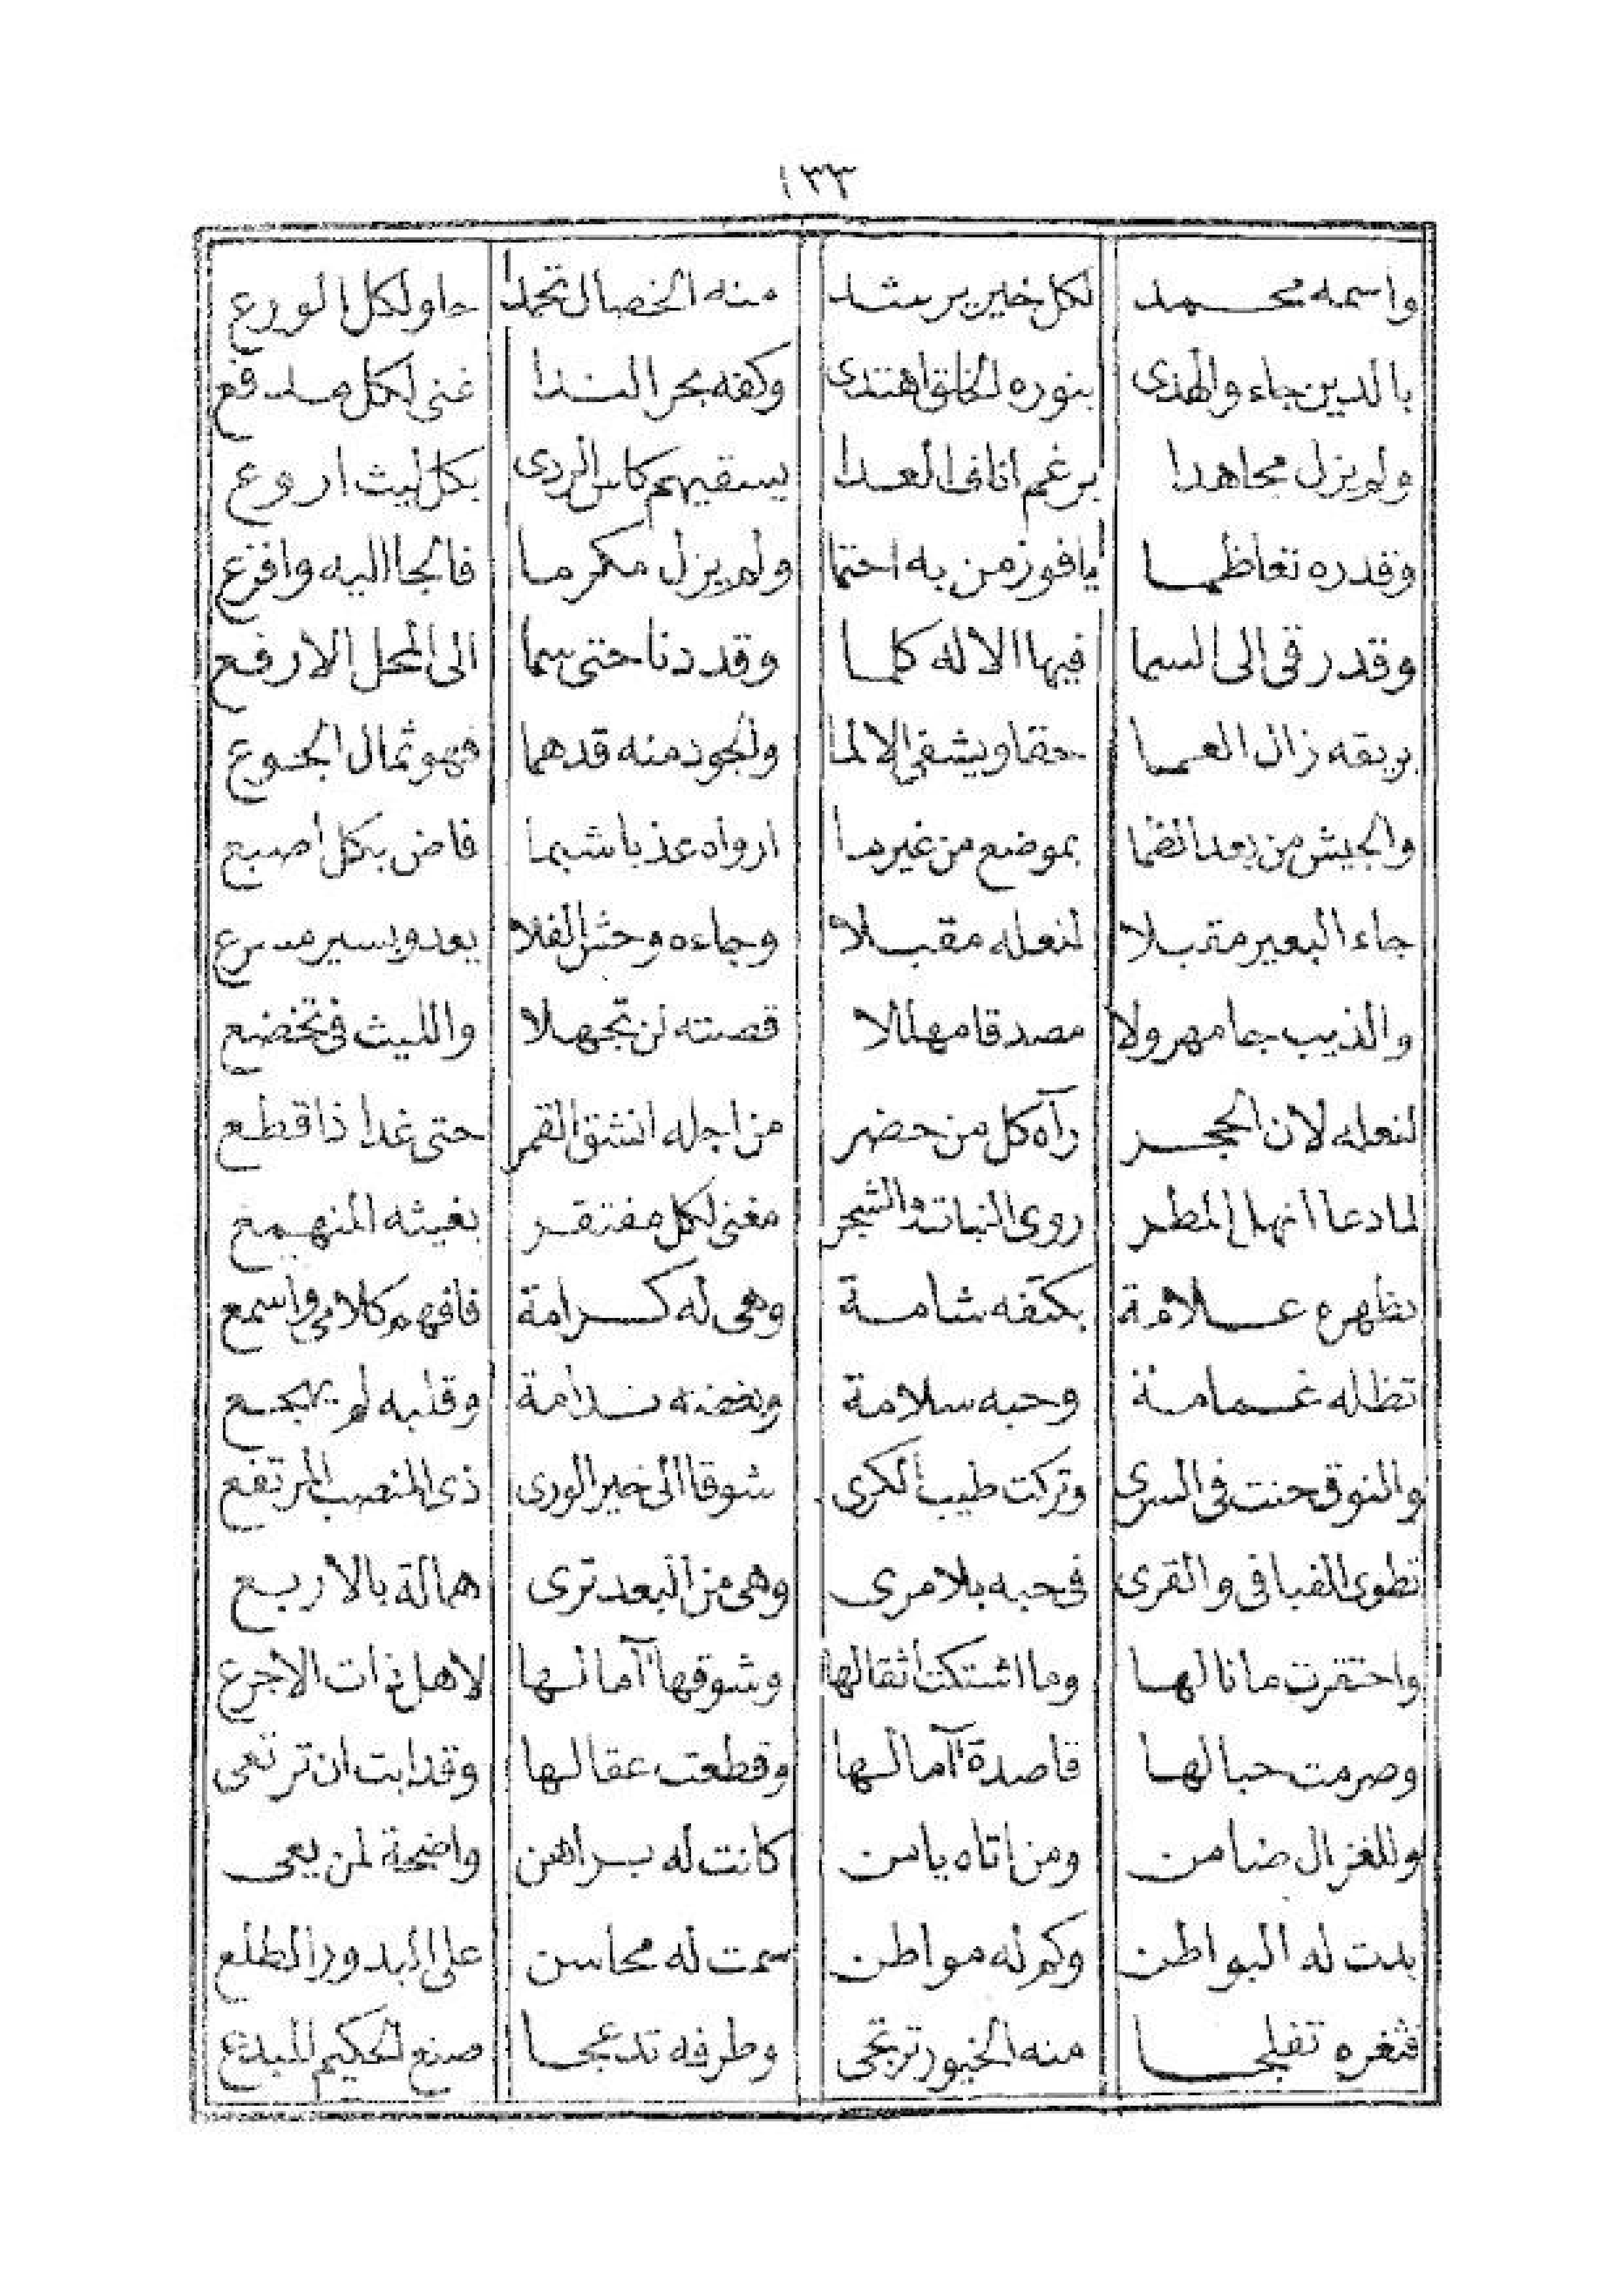 ١٣٣
واسمه محمد لكل خير يرشد منه الخصال تحمدا حاو لكل الورع
بالدين جاء والهدى بنوره الخلق اهتدى وكفه بحر الندا غنى لكل مدقع
ولم يزل مجاهدا برغم انافى العدا يسقيهم كاس الردى بكل ليث اروع
وقدره تعاظما يافوز من به احتما ولم يزل مكرما فالجا اليه وافزع
وقد رقى الى السما فيها الاله كلما وقد دنا حتى سما الى المحل الارفع
بريقه زال العما حقا ويشفى الالما ولجود منه قدهما فهو ثمال الجوع
والجيش من بعد الظما بموضع من غير ما ارواه عذبا شبما فاض بكل اصبع
جاء البعير مقبلا لنعله مقبلا وجاءه وحش الفلا يعدو بسير مسرع
والذيب جا مهرولا مصدقا مهللا قصته لن تجهلا والليث فى تخضع
لنعله لان الحجر رآه كل من حضر من اجله انشق القمر حتى غدا ذا قطع
لما دعا انهل المطر روى النبات والشجر مغنى لكل مفتقر بغيثه المنهمع
بظهره علامة بكتفه شامة وهى له كرامة فافهم كلامى واسمع
تظله غمامة وحبه سلامة وبغضه ندامة وقلبه لم يهجع
والنوق حنت فى السرى وتركت طيب الكرى شوقا الى خير الورى ذى المنصب المرتفع
تطوى الفيافى والقرى فى حبه بلا مرى وهى من البعد ترى همالة بالاربع
واحتقرت ما نالها وما اشتكت أثقالها وشوقها أمالها لاهل ذات الاجرع
وصرمت حبالها قاصدة آمالها وقطعت عقالها وقد ابت ان ترتعى
وللغزال ضامن ومن اتاه يامن كانت له براهن واضحة لمن يعى
بدت له البواطن وكم له مواطن سمت له محاسن على البدور الطلع
فثغره تفلجا منه الحبور ترتجى وطرفه تدعجا صنع الحكيم المبدع